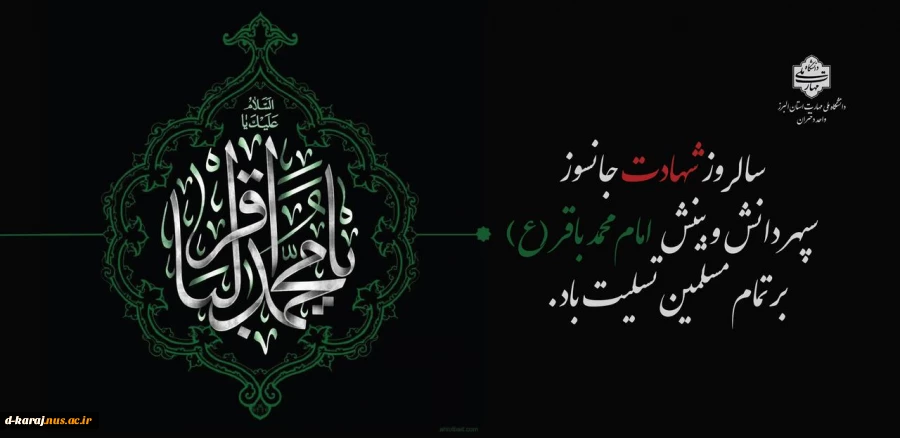 دانشگاه ملی مهارت
دانشگاه ملی مهارت استان البرز
واحد دختران
السَّلامُ
عَلَيْكَ يا
يا مُحَمَّدَ الباقر
سالروز شهادت جانسوز
سپهر دانش و بینش امام محمد باقر (ع)
بر تمام مسلمین تسلیت باد.
d-karaj.nus.ac.ir